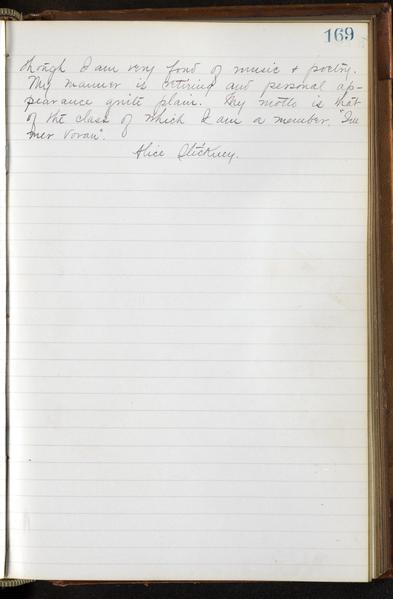 169
though I am very fond of music & poetry.
My manner is retiring and personal ap-
pearance quite plain. My motto is that
of the class of which I am a member. "Im
mer Voran".
Alice Stickney.